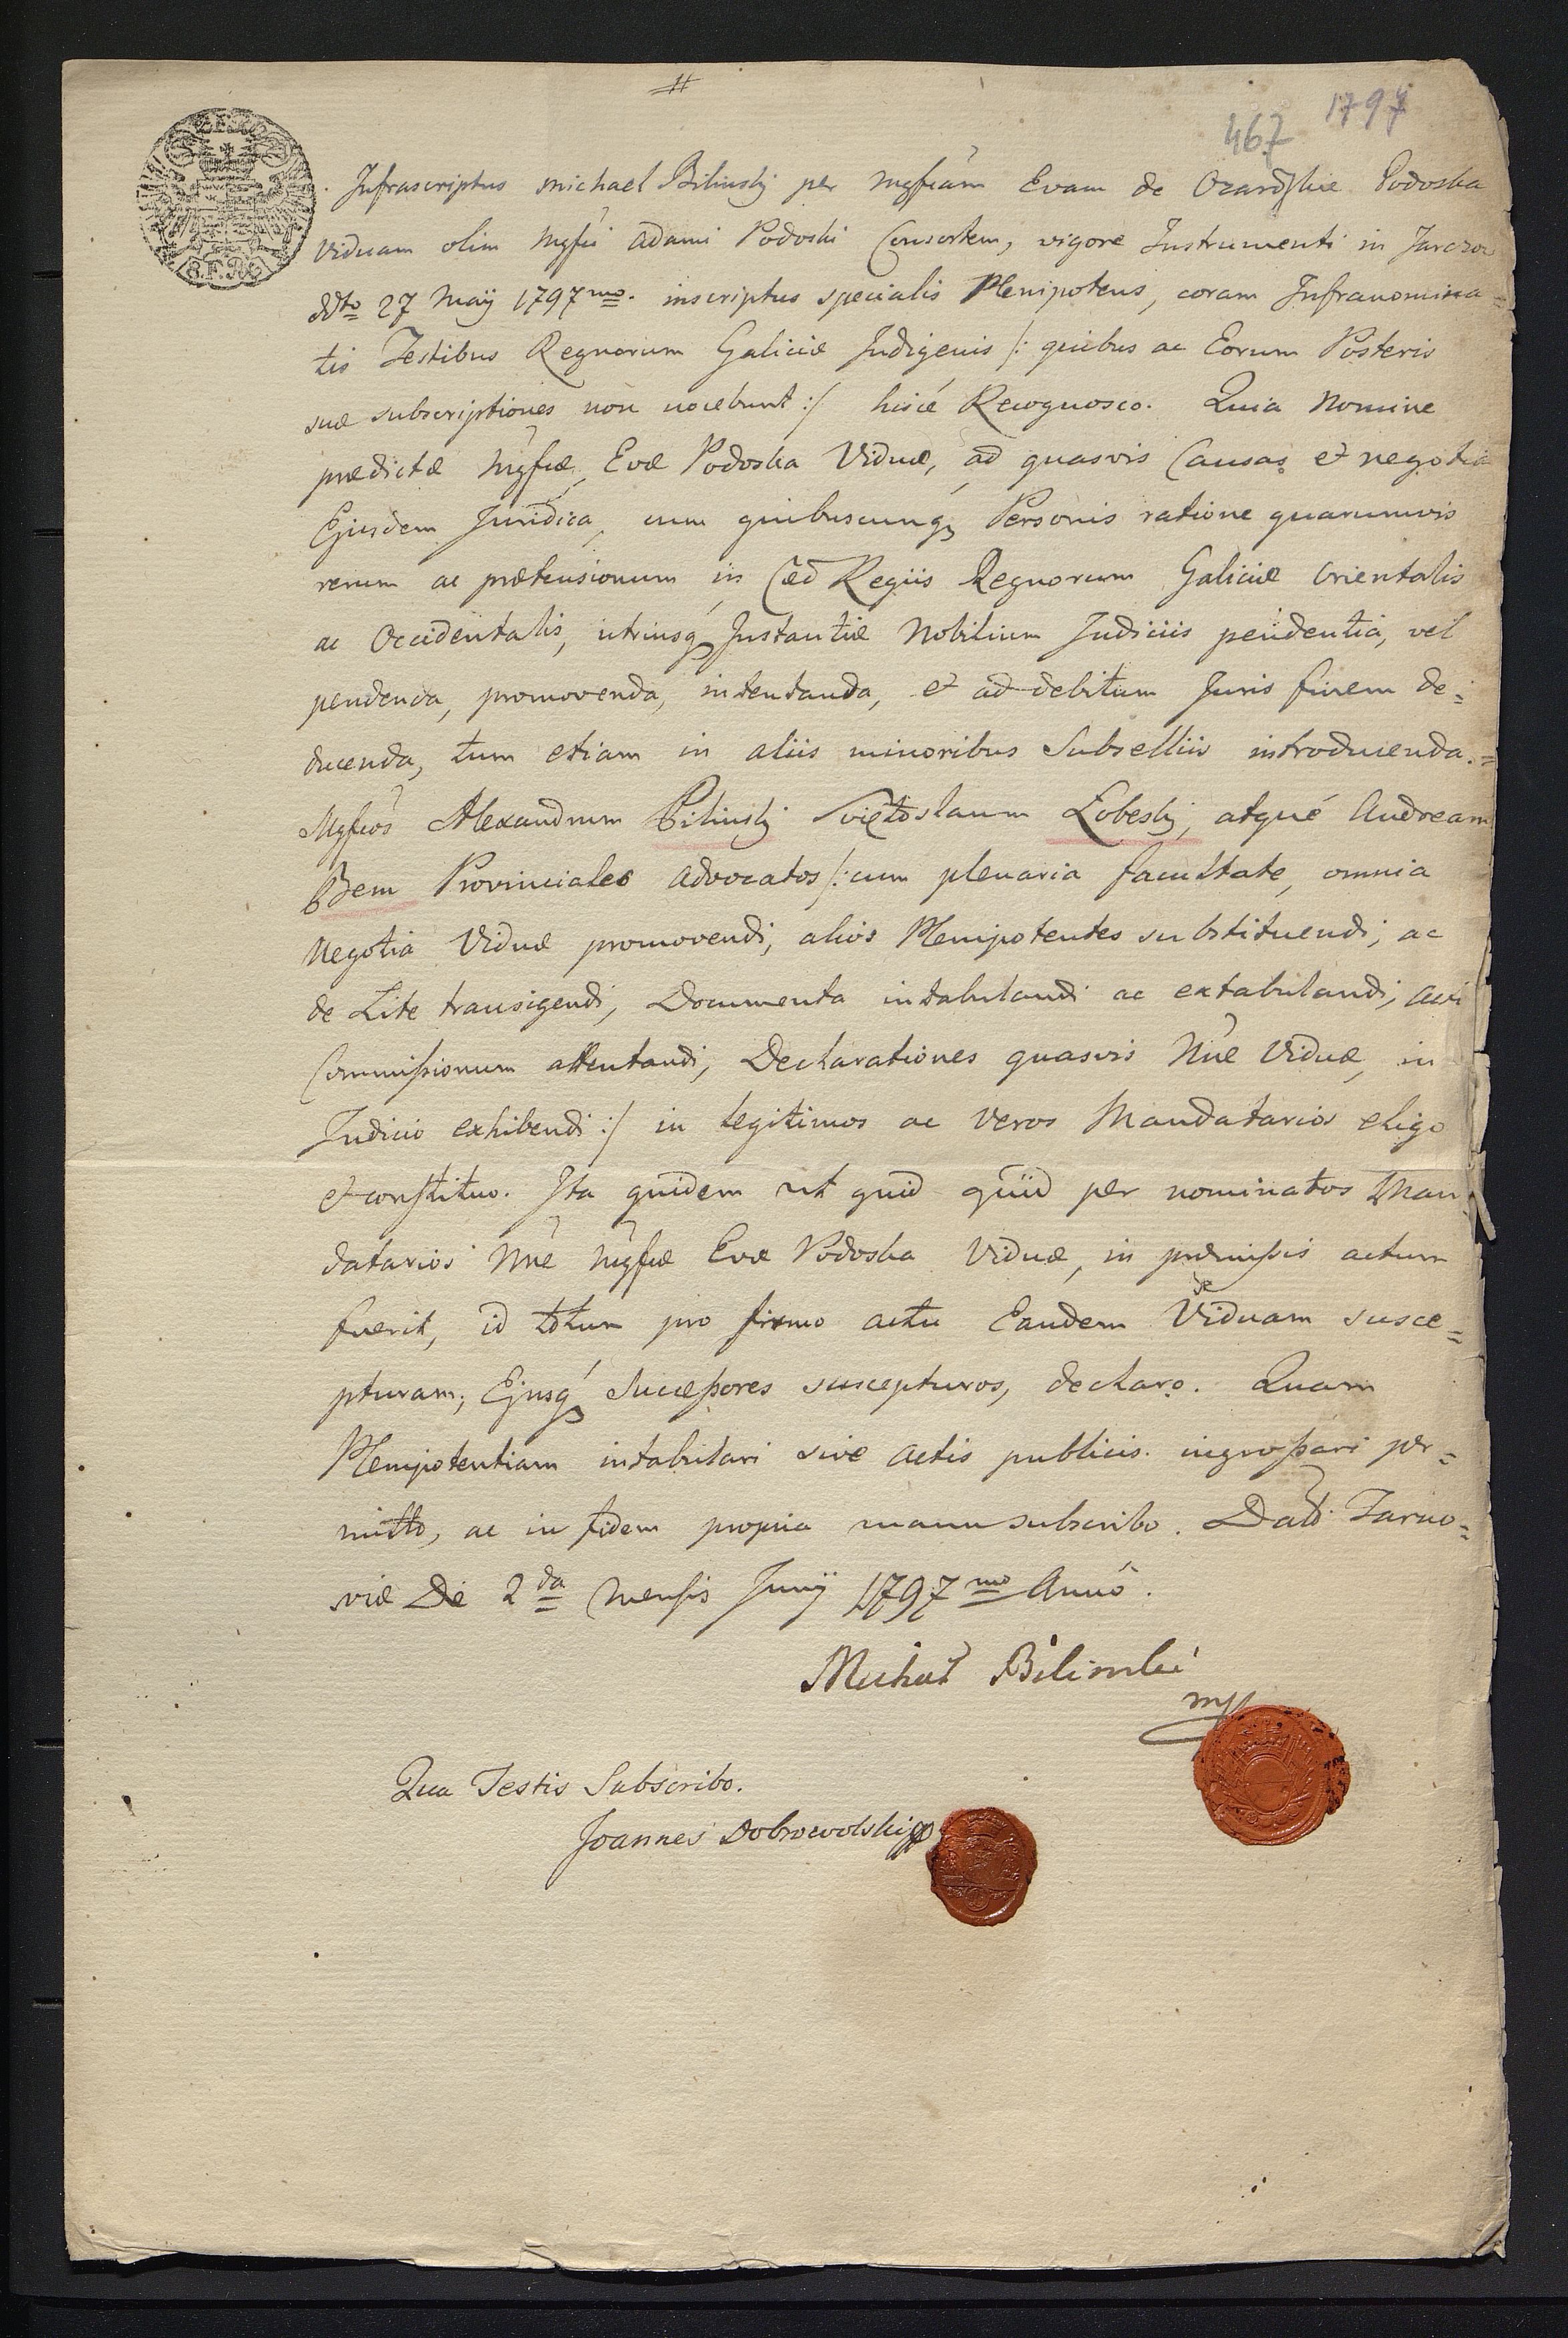 #
467 1797
Infrascriptus Michael Bilinskj per Mgfcam Evam de Ozarowskie Podoska
Viduam olim Mgfci Adami Podoski Consortem, vigore Instrumenti in Jarczow
ddto 27 Maÿ 1797mo. inscriptus specialis Plenipotens, coram Infranomina=
tis Testibus Regnorum Galiciæ Indigenis /: quibus ac Eorum Posteris
suæ subscriptiones non nocebunt :/ hisce Recognosco. Quia Nomine
prædictæ Mgfcæ Evæ Podoska Viduæ, ad quasvis Causas et negotia
Ejusdem Juridica, cum quibuscunq Personis ratione quarumvis
rerum ac prætensionum in Cæs Regiis Regnorum Galiciæ Orientalis
ac Occidentalis, utriusq Instantiæ Nobilium Judiciis pendentia, vel
pendenda, promovenda, intentanda, et ad debitum Juris finem de=
ducenda, tum etiam in aliis minoribus Subselliis introducenda.=
Mgfcos Alexandrum Bilinskj Swiętoslaum Łobeskj, atque Andream
Bem Provinciales Advocatos /: cum plenaria facultate, omnia
Negotia Viduæ promovendi, alios Plenipotentes substituendi, ac
de Lite transigendi, Documenta intabulandi ac extabulandi,
Commissionum attentandi, Declarationes quasvis Nne Viduæ, in
Judicio exhibendi :/ in legitimos ac veros Mandatarios eligo
et constituo. Ita quidem ut quid quid per nominatos Man=
datarios Nne Mgfcæ Evæ Podoska Viduæ, in præmissis actum
fuerit, id totum pro firmo actu Eandem Viduam se susce=
pturam, Ejusq Successores suscepturos, declaro. Quam
Plenipotentiam intabulari sive Actis publicis ingrossari per=
mitto, ac in fidem propria manu subscribo. Datt Tarno=
viæ Die 2da Mensis Junÿ 1797mo Anno.
Michał Bilinski
mp
Qua Testis Subscribo.
Joannes Dobrowolski